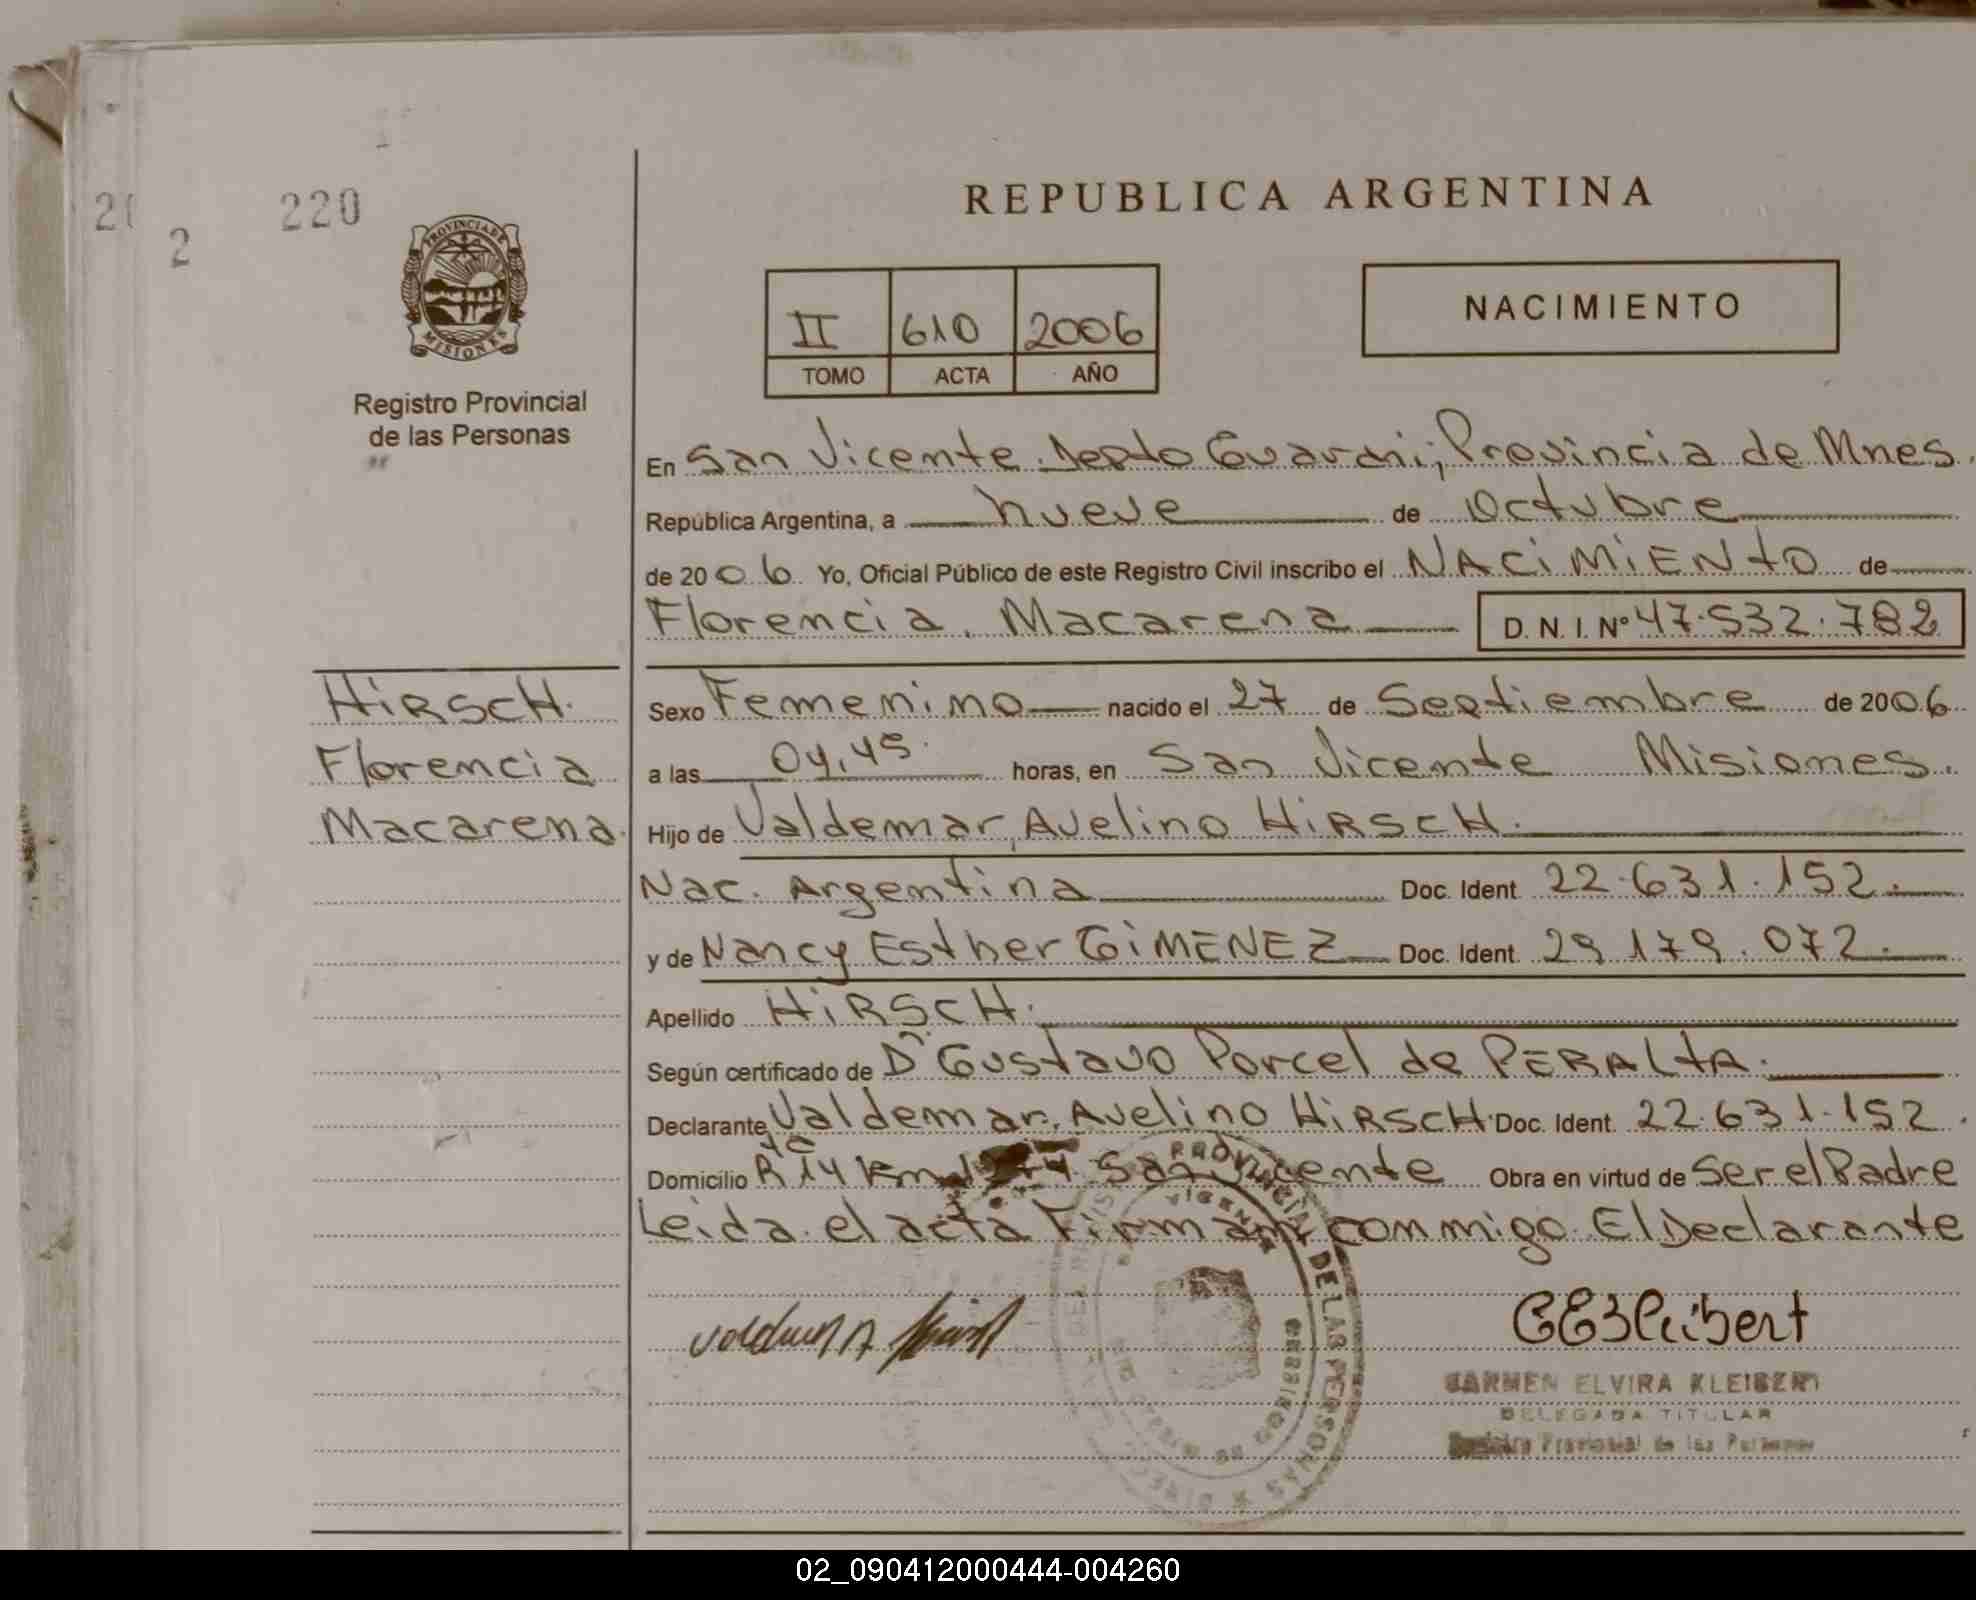 220
2
PROVINCIA DE
MISIONES
Registro Provincial
de las Personas
REPUBLICA ARGENTINA
II 610 2006
TOMO ACTA AÑO
NACIMIENTO
En San Vicente Depto Guarani; Provincia de Mnes.
República Argentina, a nueve de Octubre
de 2006 Yo, Oficial Público de este Registro Civil inscribo el NACiMiENtO de
Florencia, Macarena D. N. I. Nº 47.532.782
HiRScH.
Florencia
Macarena.
Sexo Femenino nacido el 27 de Septiembre de 2006
a las 04,45 horas, en San Vicente Misiones.
Hijo de Valdemar, Avelino HiRScH.
Nac. Argentina Doc. Ident. 22.631.152.
y de Nancy Esther GiMENEZ Doc. Ident. 29.179.072.
Apellido HiRScH.
Según certificado de Dr Gustavo Porcel de PERAltA.
Declarante Valdemar, Avelino HiRScH. Doc. Ident. 22.631.152.
Domicilio R 14 Km San Vicente Obra en virtud de Ser el Padre
Leida el acta Firman conmigo El Declarante
PROVINCIAL DE LAS PERSONAS
CARMEN ELVIRA KLEIBERT
DELEGADA TITULAR
Registro Provincial de las Personas
02_090412000444-004260